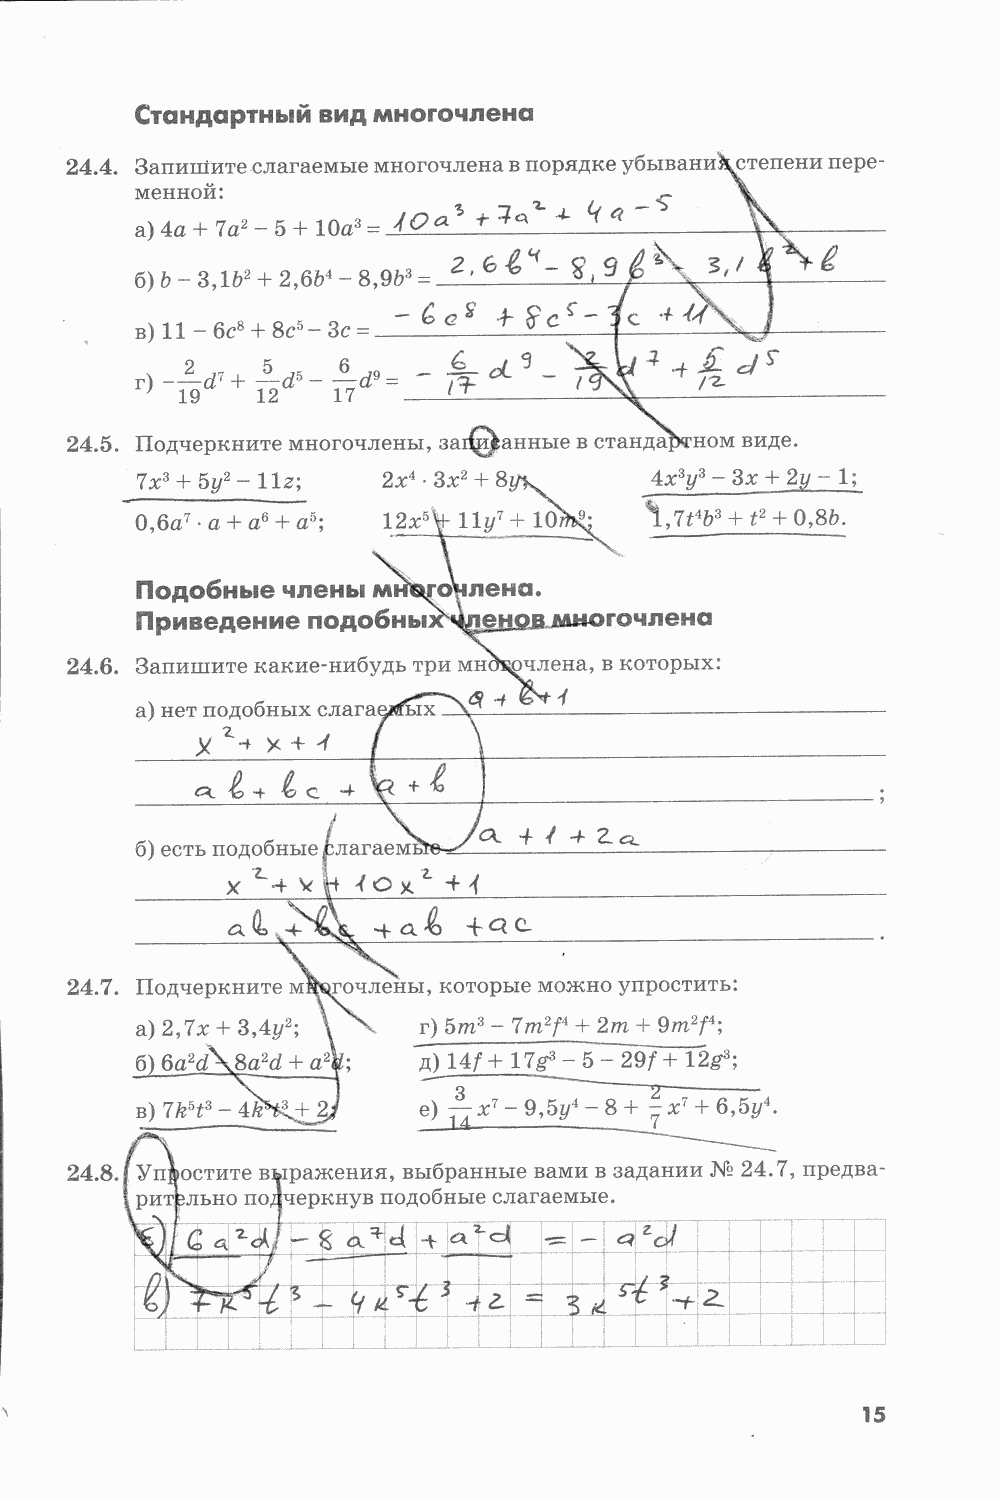 Стандартный вид многочлена
24.4. Запишите слагаемые многочлена в порядке убывания степени пере-
менной:
а) 4a + 7a² – 5 + 10a³ = 10a³ + 7a² + 4a – 5
б) b – 3,1b² + 2,6b⁴ – 8,9b³ = 2,6b⁴ – 8,9b³ – 3,1b² + b
в) 11 – 6c⁸ + 8c⁵ – 3c = – 6c⁸ + 8c⁵ – 3c + 11
г) –2/19 d⁷ + 5/12 d⁵ – 6/17 d⁹ = – 6/17 d⁹ – 2/19 d⁷ + 5/12 d⁵
24.5. Подчеркните многочлены, записанные в стандартном виде.
7x³ + 5y² – 11z; 2x⁴ · 3x² + 8y; 4x³y³ – 3x + 2y – 1;
0,6a⁷ · a + a⁶ + a⁵; 12x⁵ + 11y⁷ + 10m⁹; 1,7t⁴b³ + t² + 0,8b.
Подобные члены многочлена.
Приведение подобных членов многочлена
24.6. Запишите какие-нибудь три многочлена, в которых:
а) нет подобных слагаемых a + b + 1
x² + x + 1
ab + bc + a + b ;
б) есть подобные слагаемые a + 1 + 2a
x² + x + 10x² + 1
ab + bc + ab + ac .
24.7. Подчеркните многочлены, которые можно упростить:
а) 2,7x + 3,4y²; г) 5m³ – 7m²f⁴ + 2m + 9m²f⁴;
б) 6a²d – 8a²d + a²d; д) 14f + 17g³ – 5 – 29f + 12g³;
в) 7k⁵t³ – 4k⁵t³ + 2; е) 3/14 x⁷ – 9,5y⁴ – 8 + 2/7 x⁷ + 6,5y⁴.
24.8. Упростите выражения, выбранные вами в задании № 24.7, предва-
рительно подчеркнув подобные слагаемые.
б) 6a²d – 8a²d + a²d = – a²d
в) 7k⁵t³ – 4k⁵t³ + 2 = 3k⁵t³ + 2
15